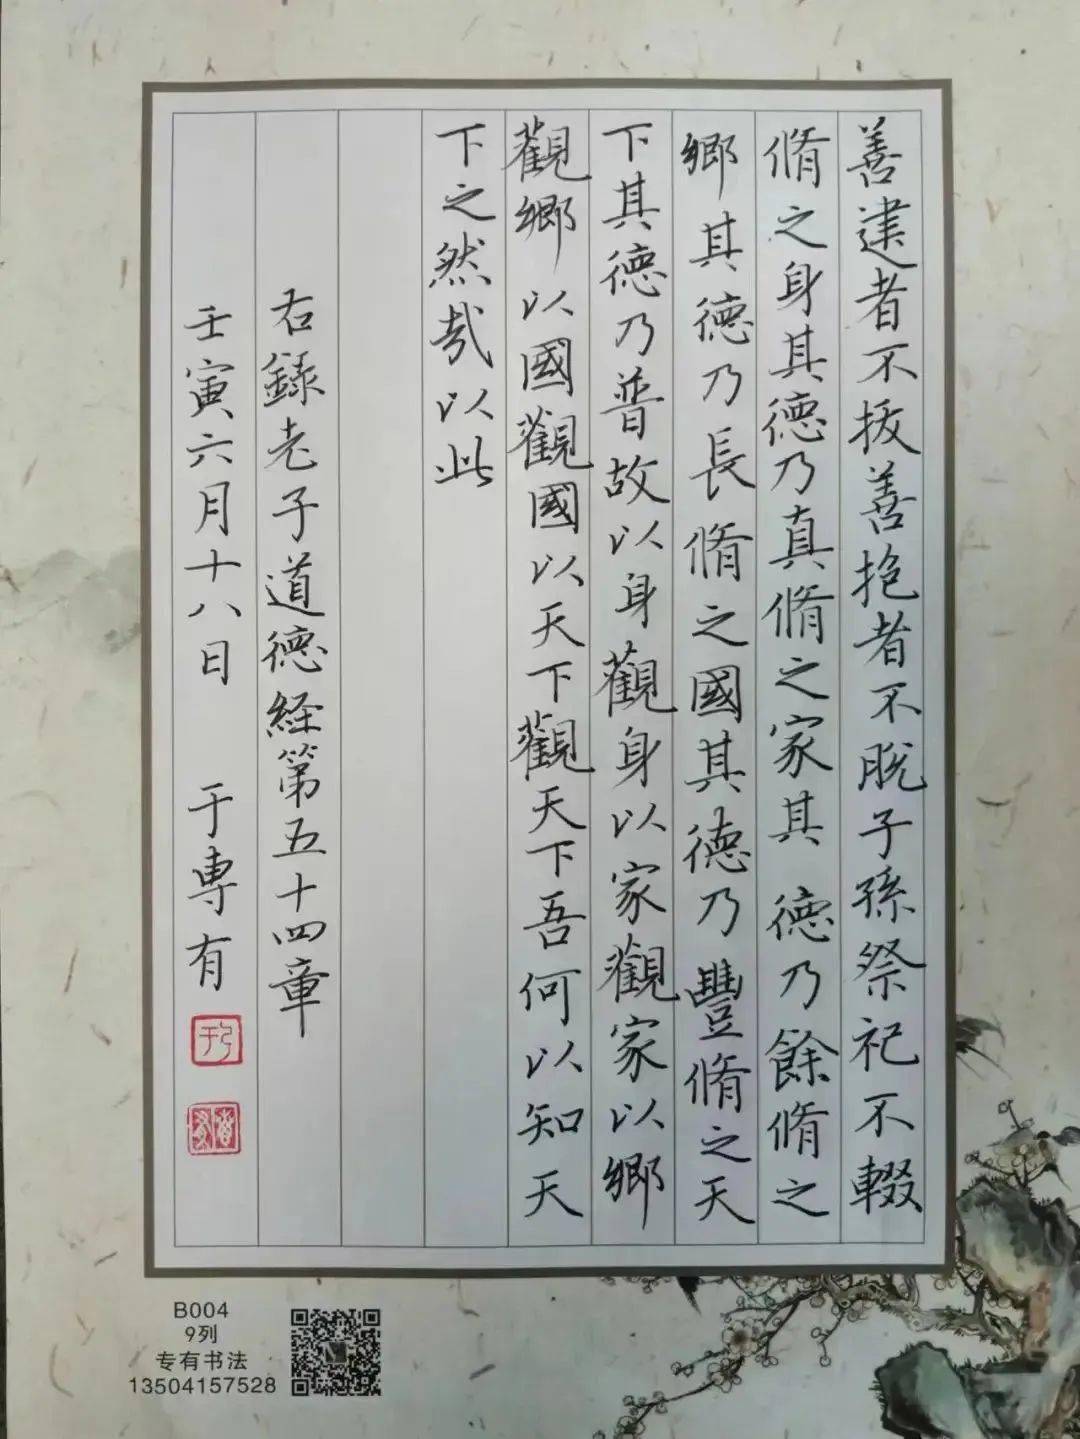 善建者不拔善抱者不脱子孫祭祀不輟
脩之身其德乃真脩之家其德乃餘脩之
鄉其德乃長脩之國其德乃豐脩之天
下其德乃普故以身觀身以家觀家以鄉
觀鄉以國觀國以天下觀天下吾何以知天
下之然哉以此
右録老子道德経第五十四章
壬寅六月十八日 于専有
B004
9列
专有书法
13504157528